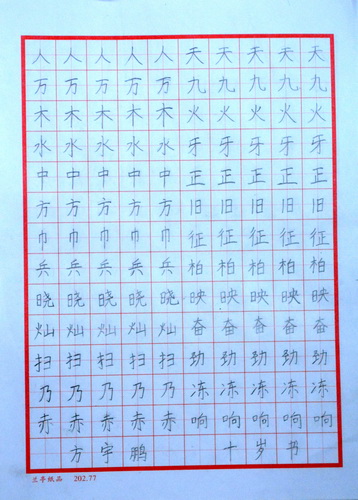 人人人人人天天天天天
万万万万万九九九九九
木木木木木火火火火火
水水水水水牙牙牙牙牙
中中中中中正正正正正
方方方方方旧旧旧旧旧
巾巾巾巾巾征征征征征
兵兵兵兵兵柏柏柏柏柏
晓晓晓晓晓映映映映映
灿灿灿灿灿奋奋奋奋奋
扫扫扫扫扫劲劲劲劲劲
乃乃乃乃乃冻冻冻冻冻
赤赤赤赤赤响响响响响
方宇鹏 十岁书
兰亭纸品 202.77